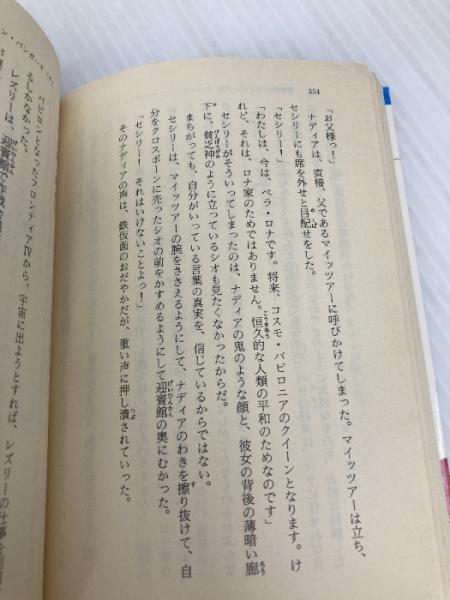 254
「お父様っ！」
ナディアは、直接、父であるマイッツアーに呼びかけてしまった。マイッツアーは立ち、
セシリーにも席を外せと目配せをした。
「セシリー！」
「わたしは、今は、ベラ・ロナです。将来、コスモ・バビロニアのクイーンとなります。け
れど、それは、ロナ家のためではありません。恒久的な人類の平和のためなのです」
セシリーがそういってしまったのは、ナディアの鬼のような顔と、彼女の背後の薄暗い廊
下に、貧乏神のように立っているシオも見たくなかったからだ。
まちがっても、自分がいっている言葉の真実を、信じているからではない。
セシリーは、マイッツアーの腕をささえるようにして、ナディアのわきを擦り抜けて、自
分をクロスボーンに売ったシオの前をかすめるようにして迎賓館の奥にむかった。
「セシリー！ それはいけないことよっ！」
そのナディアの声は、鉄仮面のおだやかだが、重い声に押し潰されていった。
バビロンとなったフロンティアIVから、宇宙に出ようとすれば、レズリーの仕事を
るしかなかった。
レズリーは、迎賓館で作戦